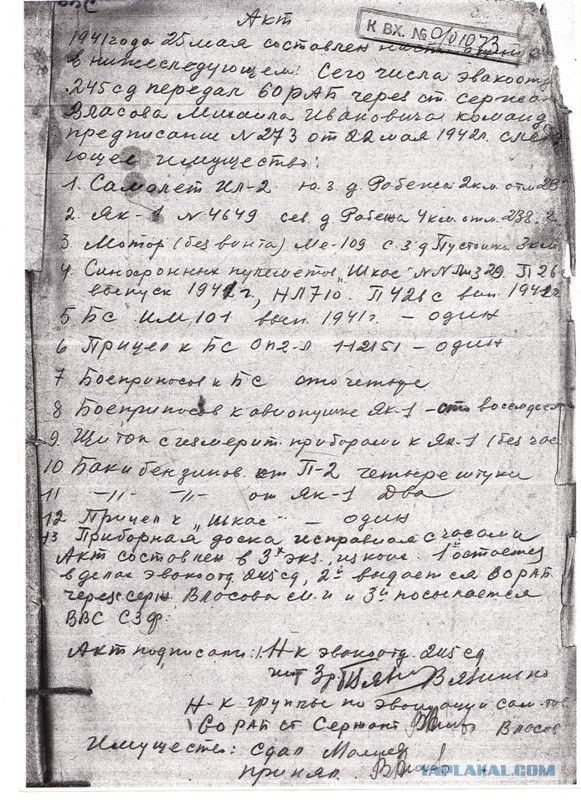 ВВС
Акт
К ВХ. № 0/01073
1941 года 25 мая составлен наст
в нижеследующем: Сего числа эвакоотд
245 сд передал 60 РАБ через ст. сержа
Власова Михаила Ивановича команд
предписание N 273 от 22 мая 1942 г. след
ющее имущество:
1. Самолет Ил-2 ю. з. д. Рабежа 2 км. отм.
2. Як-1 N 4649 сев. д. Рабежа 4 км. отм. 238.
3 Мотор (без винта) Ме-109 с. з д Пустошка 3 км
4 Синхронных пулеметов "Шкас" П26
выпуск 1942 г, НЛ 710. П 426 с вып. 1942 г
5 БС ИМ 101 вып. 1941 г. – один
6 Прицел к БС ОП2-Л 112151 – один
7 Боеприпасов к БС сто четыре
8 Боеприпасов к авиопушке Як-1 – сто восемдесят
9 Щиток с измерит. приборами к Як-1 (без час
10 Баки бензинов. от П-2 четыре штуки
11 -//- -//- от Як-1 Два
12 Прицел к "Шкас" – один
13 Приборная доска исправная с часами
Акт составлен в 3х экз, из коих 1й остается
в делах эвакоотд 245 сд, 2й выдается 60 РАБ
через серж Власова М. И и 3й посылается
ВВС СЗФ.
Акт подписали: 1. Н-к эвакоотд. 245 сд
Н-к группы по эвакуации сам-тов
60 РАБ ст Сержант Власов
Имущество: сдал
принял
YAPLAKAL.COM